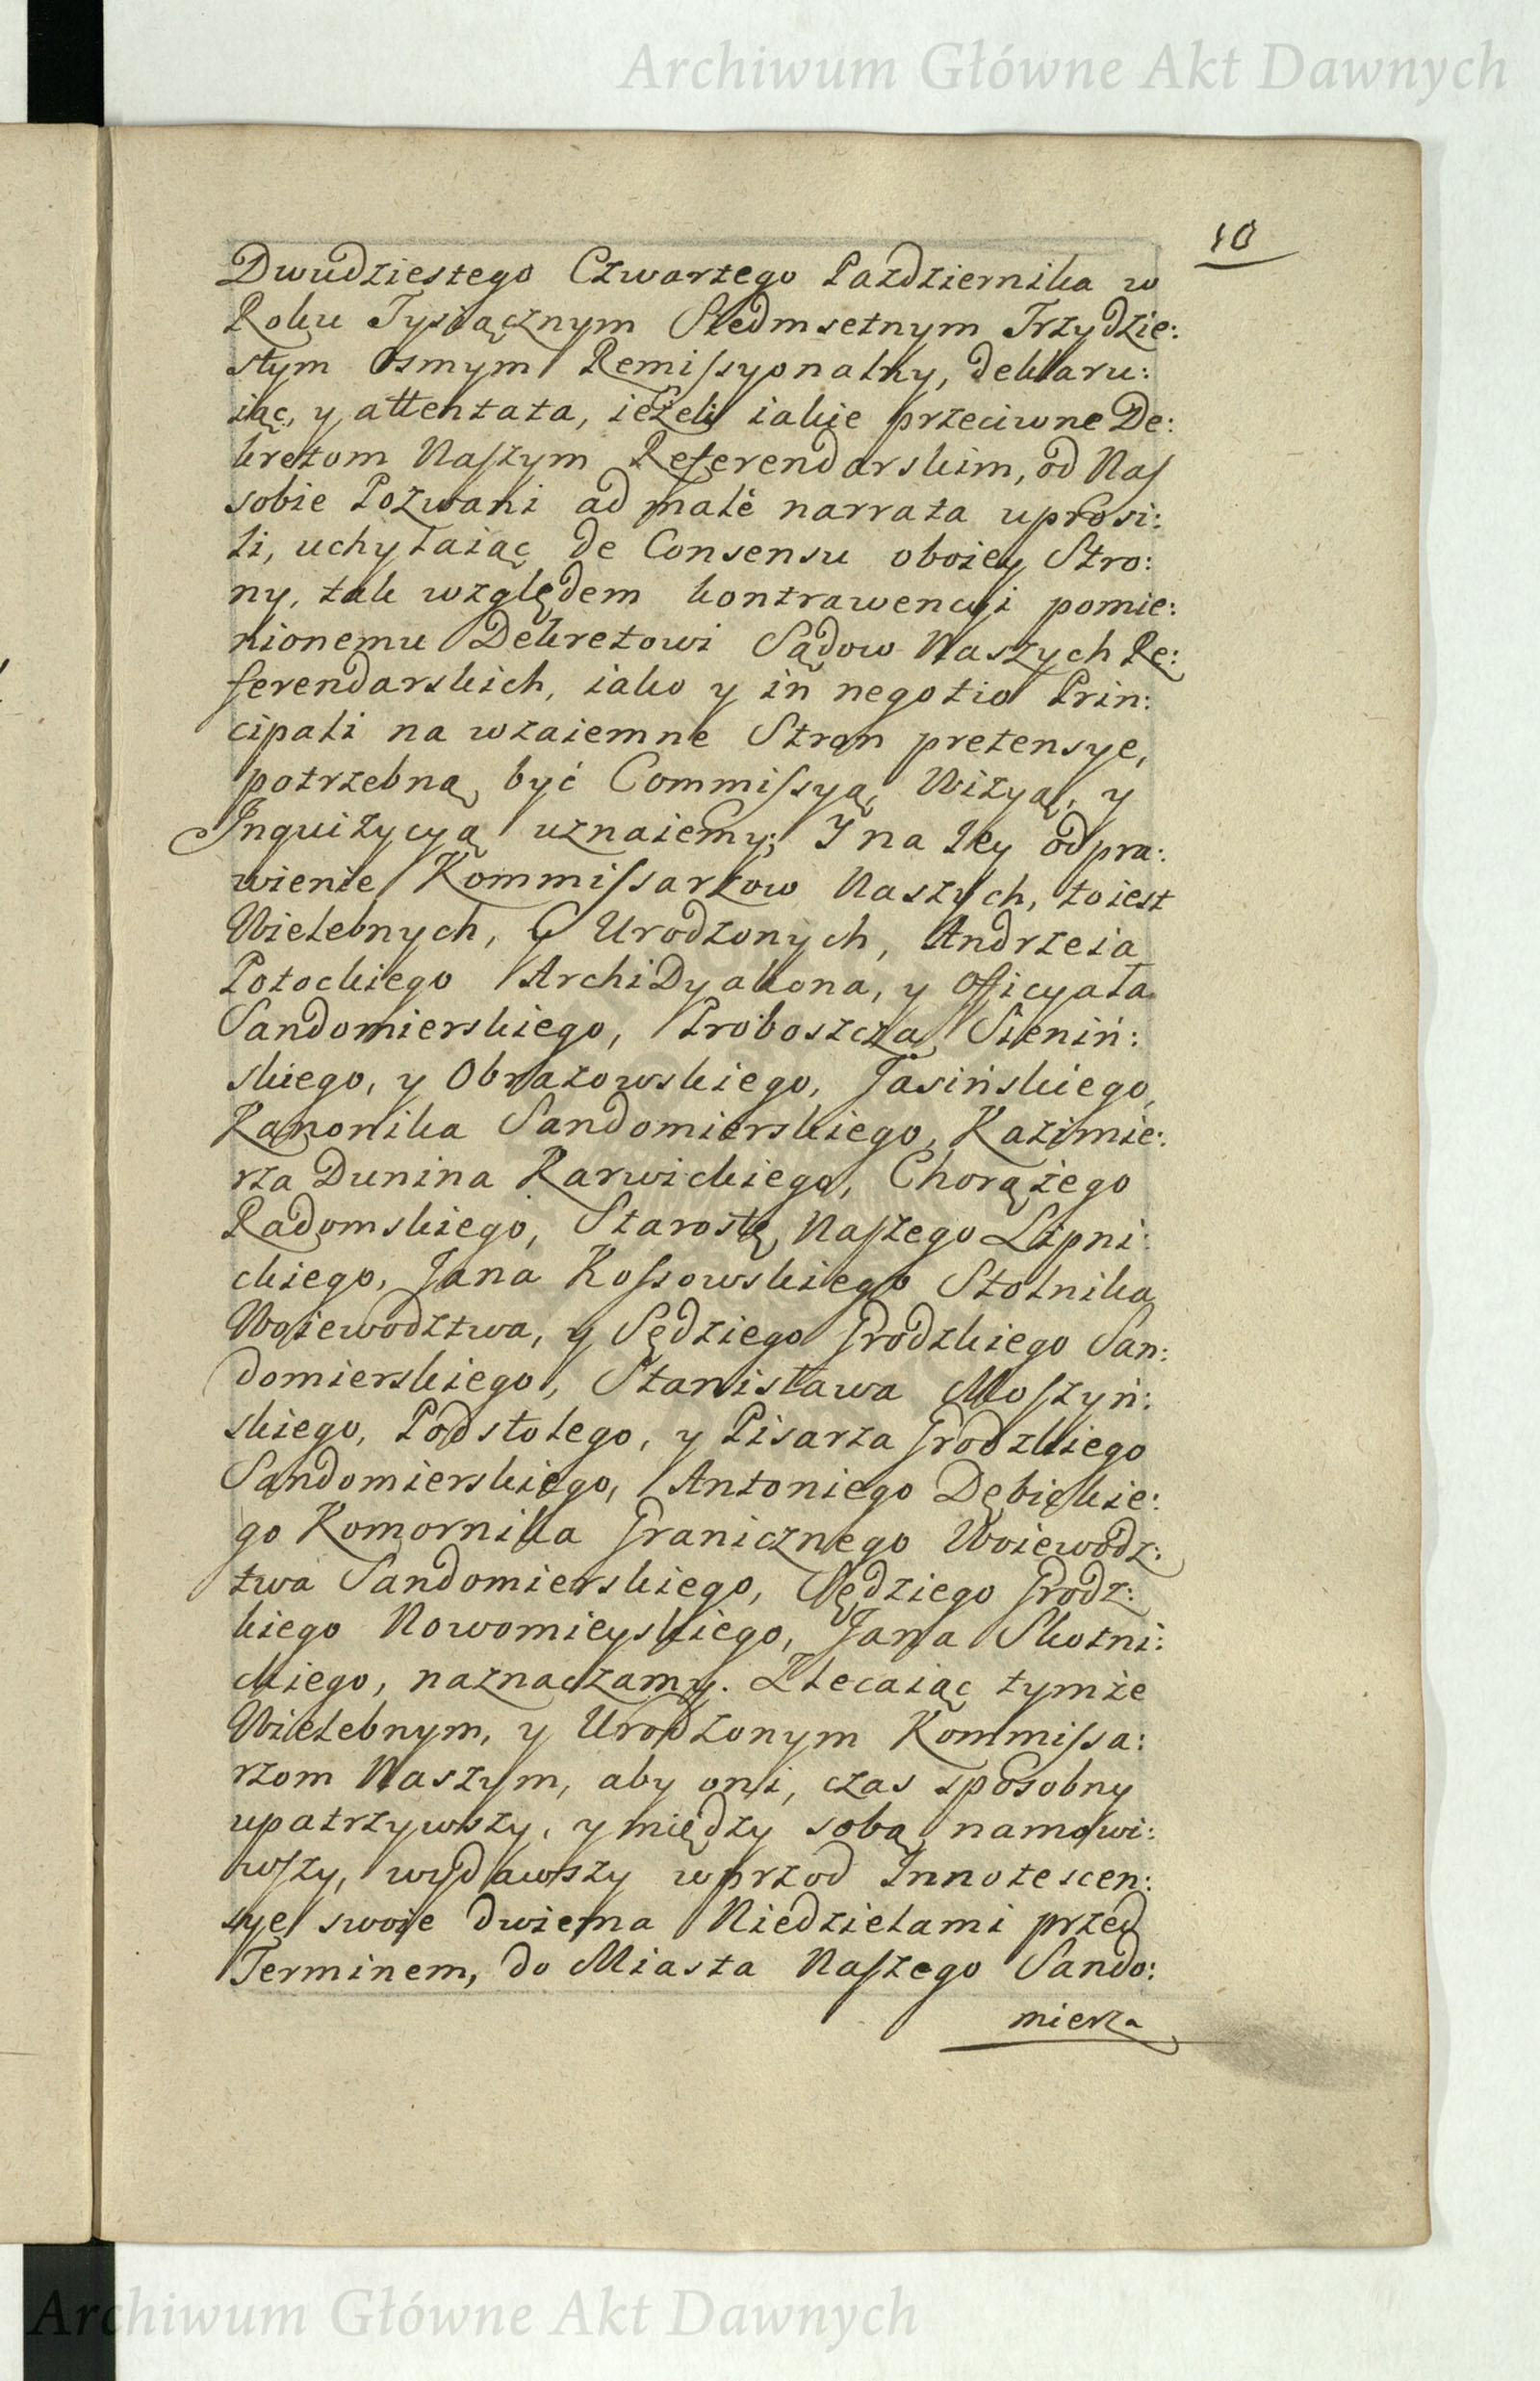 Archiwum Główne Akt Dawnych
10
Dwudziestego Czwartego Pazdziernika w
Roku Tysiącznym Siedmsetnym Trzydzie:
stym osmym Remiſsyonalny, deklaru:
iąc, y attentata, ieżeli iakie przeciwne De:
kretom Naſzym Referendarskim, od Naſ
sobie Pozwani ad malè narrata uprosi:
li, uchylaiąc de Consensu oboiey Stro:
ny, tak względem kontrawencyi pomie:
nionemu Dekretowi Sądow Naszych Re:
ferendarskich, iako y in negotio Prin:
cipali na wzaiemne Stron pretensye,
potrzebną być Commiſsyą, Wizyą, y
Inquizycyą uznaiemy; I na Iey odpra:
wienie Kommiſsarzow Naszych, toiest
Wielebnych, y Urodzonych, Andrzeia
Potockiego ArchiDyakona, y Officyała
Sandomierskiego, Proboszcza Sieniń:
skiego, y Obrazowskiego, Jasińskiego,
Kanonika Sandomierskiego, Kazimie:
rza Dunina Karwickiego, Chorążego
Radomskiego, Starostę Naſzego Lipni:
ckiego, Jana Koſsowskiego Stolnika
Woiewodztwa, y Sędziego Grodzkiego San:
domierskiego, Stanisława Moſzyń:
skiego, Podstolego, y Pisarza Grodzkiego
Sandomierskiego, Antoniego Dębickie:
go Komornika Granicznego Woiewodz:
twa Sandomierskiego, Sędziego Grodz:
kiego Nowomieyskiego, Jana Skotni:
ckiego, naznaczamy. Zlecaiąc tymże
Wielebnym, y Urodzonym Kommiſsa:
rzom Naszym, aby oni, czas sposobny
upatrzywszy, y między sobą namowi:
wſzy, wydawszy wprzod Innotescen:
sye swoie dwiema Niedzielami przed
Terminem, do Miasta Naſzego Sando:
mierza
Archiwum Główne Akt Dawnych